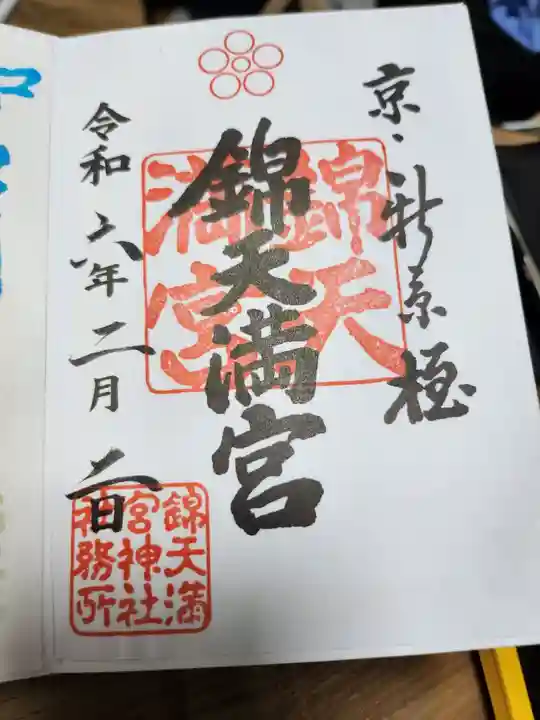 京・新京極
錦天満宮
錦天
満宮
令和六年二月二日
錦天満
宮神社
神務所